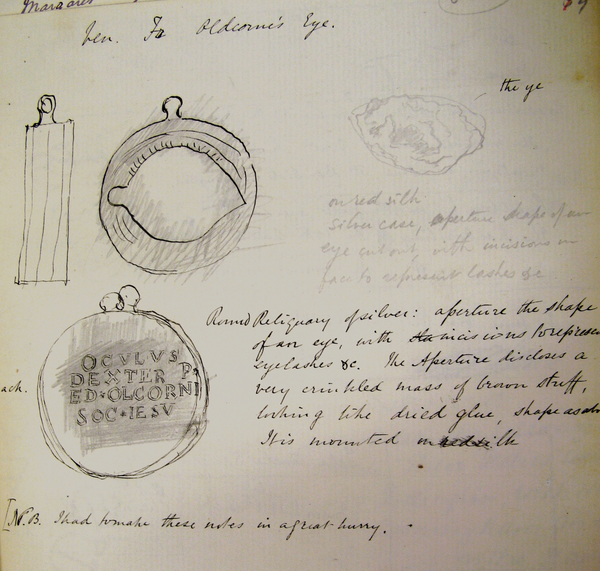 Margaret
Ven. Fr Oldcorne's Eye.
the ye
on red silk
silver case, aperture shape of an
eye cut out, with incisions in
face to represent lashes &c
Round Reliquary of silver: aperture the shape
of an eye, with incisions to represen
eyelashes &c. The Aperture discloses a
very crinkled mass of brown stuff,
looking like dried glue, shape as abo
It is mounted on red silk
OCVLVS
DEXTER P.
ED·OLCORNI
SOC·IESV
ack.
[N.B. I had to make these notes in a great hurry.